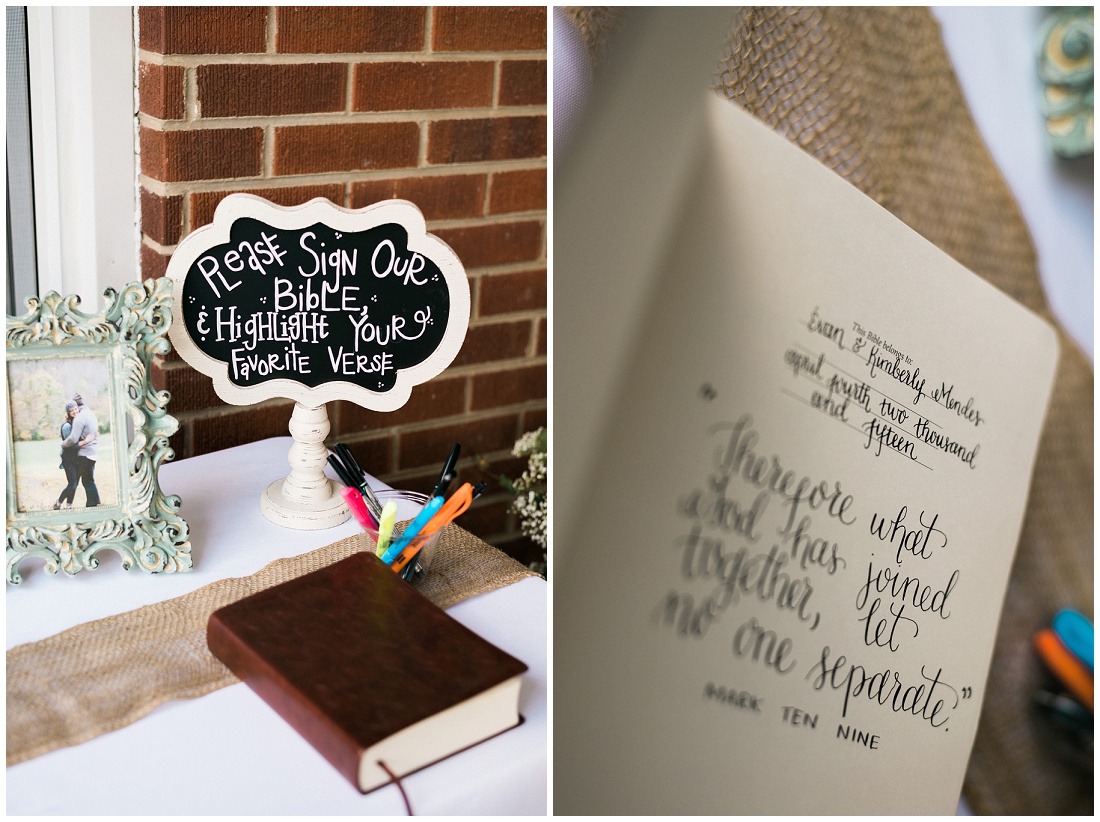 Please Sign Our
Bible,
& Highlight Your
Favorite Verse
This Bible belongs to:
Evan & Kimberly Mendes
april fourth two thousand
and fifteen
"Therefore what
God has joined
together, let
no one separate."
MARK TEN NINE